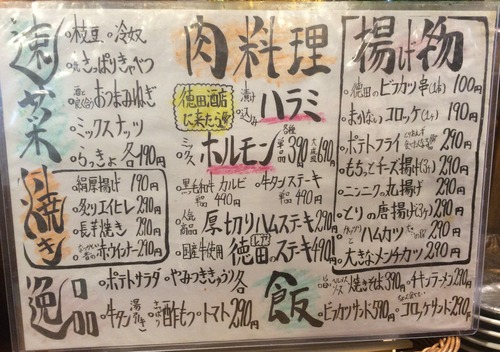 速菜
・枝豆 ・冷奴
・さっぱりきゃべつ
・おつまみねぎ
・ミックスナッツ
・らっきょ 各190円
焼き
・絹厚揚げ 190円
・炙りエイヒレ 290円
・長芋焼き 290円
赤ウインナー 290円
逸品
・ポテトサラダ ・やみつききゅうり 各
・牛タン ・酢もつ ・トマト 290円
肉料理
徳田酒店に来たら
漬け込み ハラミ
ミックス ホルモン 各種 単品 390円
・黒毛和牛カルビ 単品 490円
・牛タンステーキ 単品 490円
人気商品 厚切りハムステーキ 290円
・国産牛使用 徳田のステーキ 490円
揚げ物
・徳田のビフカツ串(1本) 100円
コロッケ(1ヶ) 190円
・ポテトフライ 290円
・もちっとチーズ揚げ(3ヶ) 290円
・ニンニクの丸揚げ 290円
・とりの唐揚げ(3ヶ) 290円
ハムカツ 290円
・大きなメンチカツ 290円
飯
焼きそば 390円
・チキンラーメン 290円
・ビフカツサンド 590円
・コロッケサンド 290円